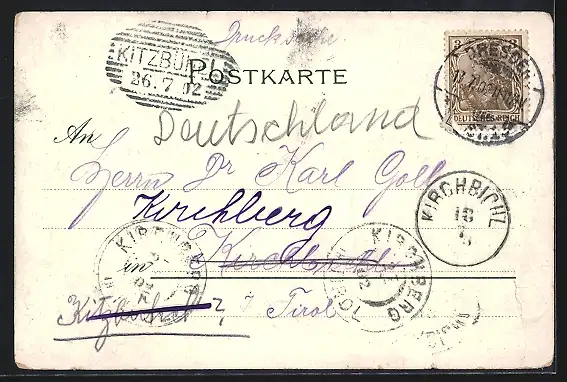 Drucksache.
KITZBÜHEL
26.7.02
POSTKARTE
3 3
DRESDEN
DEUTSCHES REICH
Deutschland
An
Herrn Dr Karl Goll
Kirchberg
KIRCHBICHL
18
7
in
KIRCHBERG
KIRCHBERG
TIROL
i Tirol